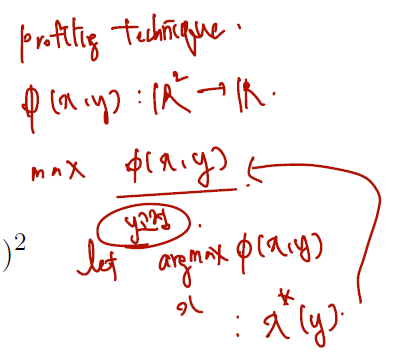 profiling technique.
φ(x,y) : ℝ² → ℝ.
max φ(x,y)
y고정.
)²
let argmax φ(x,y)
x
: x*(y).